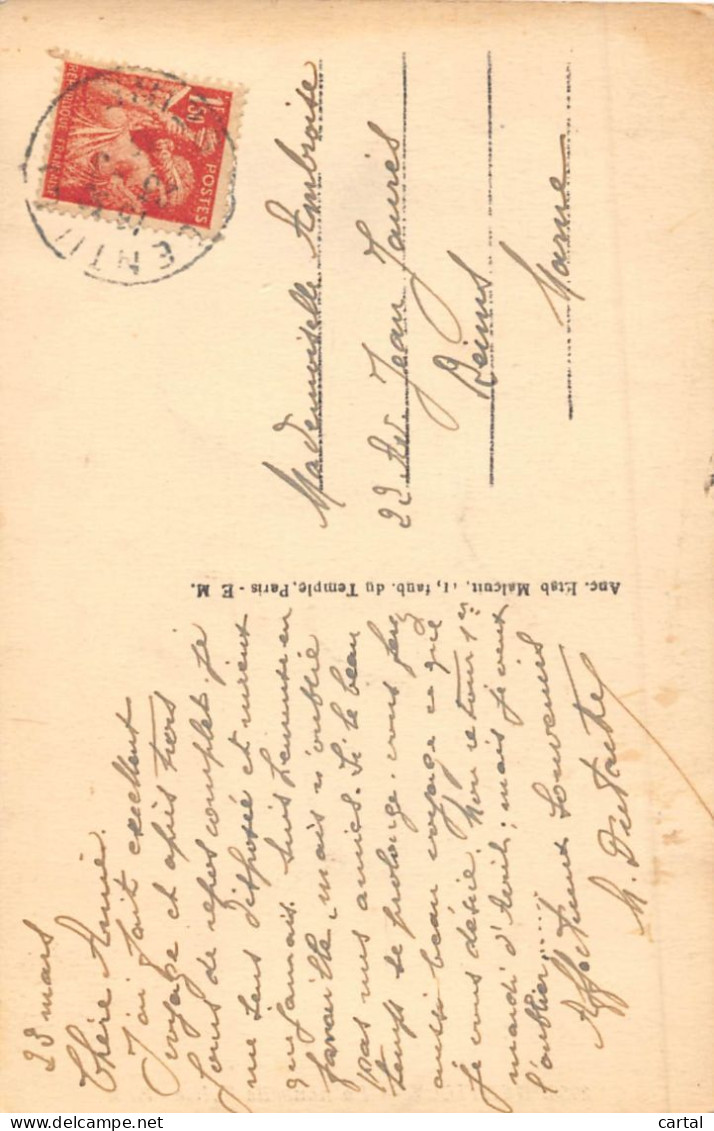 23 mars
Chère Amie.
J'ai fait excellent
voyage et après trois
jours de repos complet. je
me sens disposée et mieux
que jamais. Suis heureuse en
famille, mais n'oublie
pas mes amies. Si le beau
temps se prolonge. vous ferez
aussi beau voyage ce que
je vous désire. Mon retour 1er
mardi d'avril; mais je veux
l'oublier.....
Affectueux souvenirs
Anc. Etab Malcuit, 41, faub. du Temple, Paris - E M.
1F50
POSTES
REPUBLIQUE FRANÇAISE
Mademoiselle Ambroise
22 Av. Jean Jaurès
Reims
Marne
delcampe.net
cartal